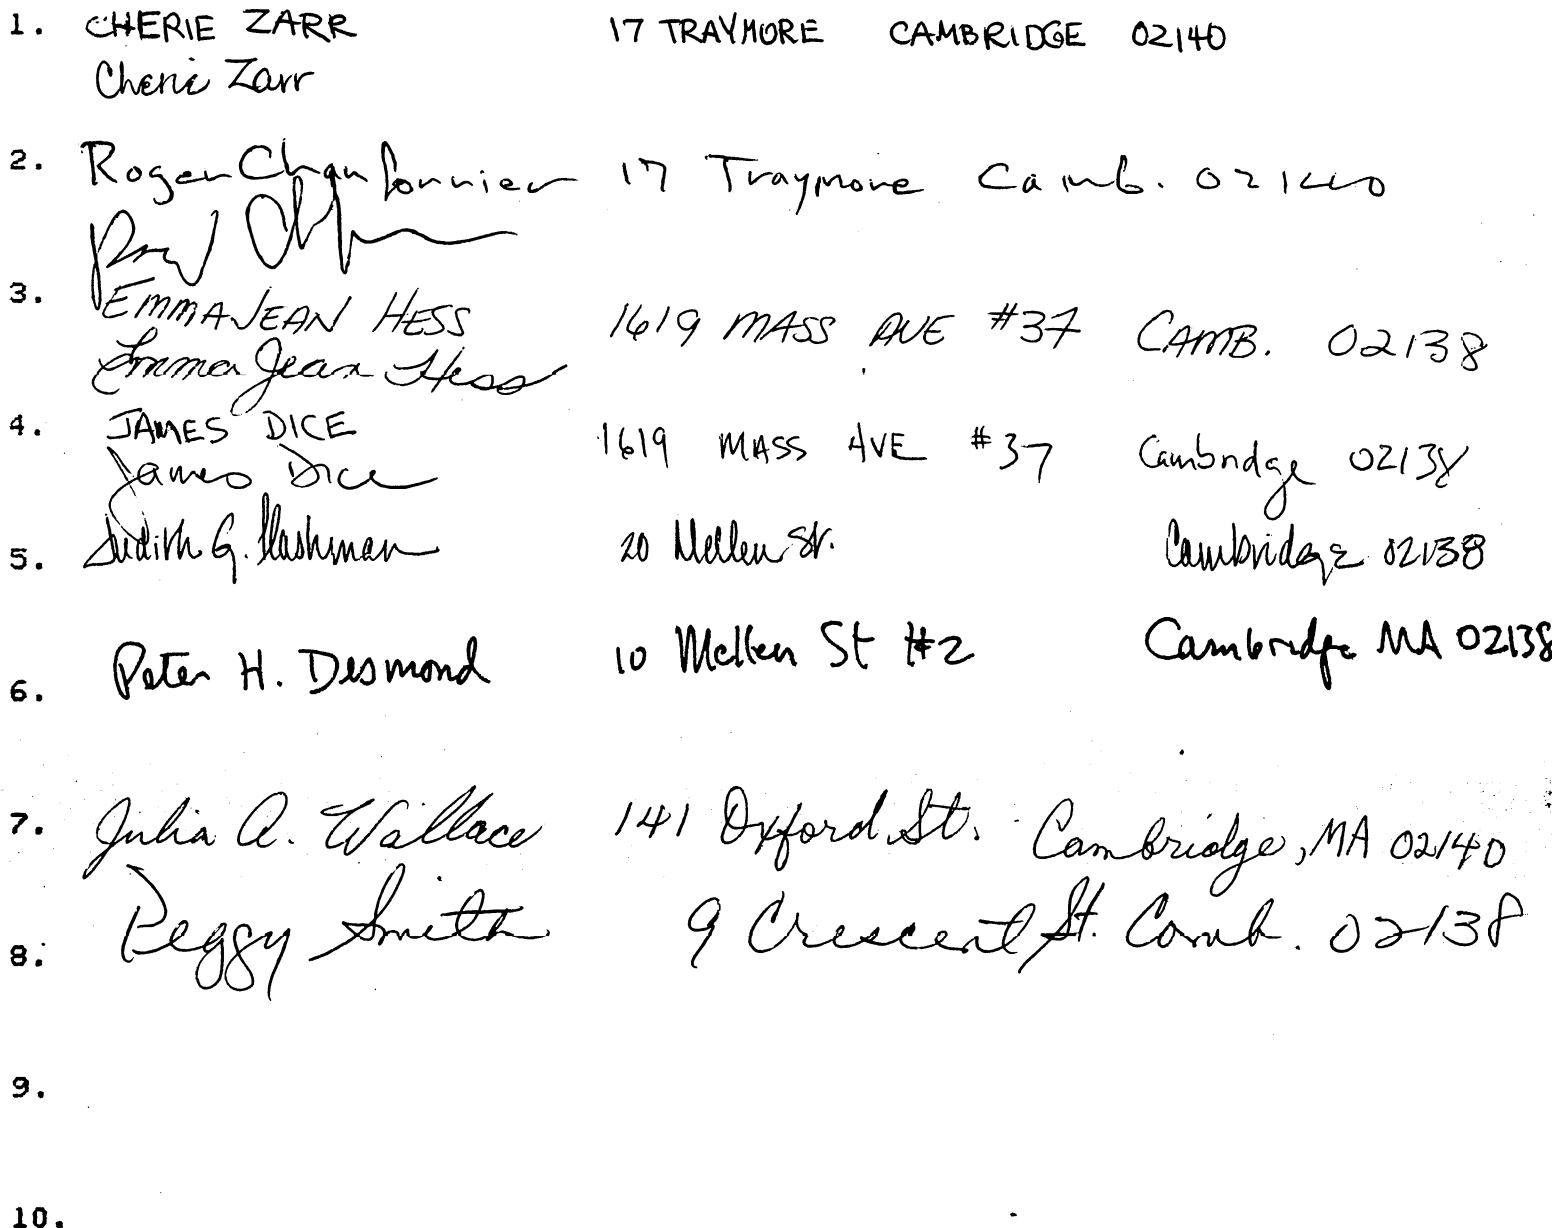 1. CHERIE ZARR 17 TRAYMORE CAMBRIDGE 02140
Cherie Zarr
2. Roger 17 Traymore Camb. 02140
3. EMMAJEAN HESS 1619 MASS AVE #37 CAMB. 02138
Emma Jean Hess
4. JAMES DICE 1619 MASS AVE #37 Cambridge 02138
James Dice
5. Judith G. Flashman 20 Mellen St. Cambridge 02138
6. Peter H. Desmond 10 Mellen St #2 Cambridge MA 02138
7. Julia A. Wallace 141 Oxford St. Cambridge, MA 02140
8. Peggy Smith 9 Crescent St. Camb. 02138
9.
10.